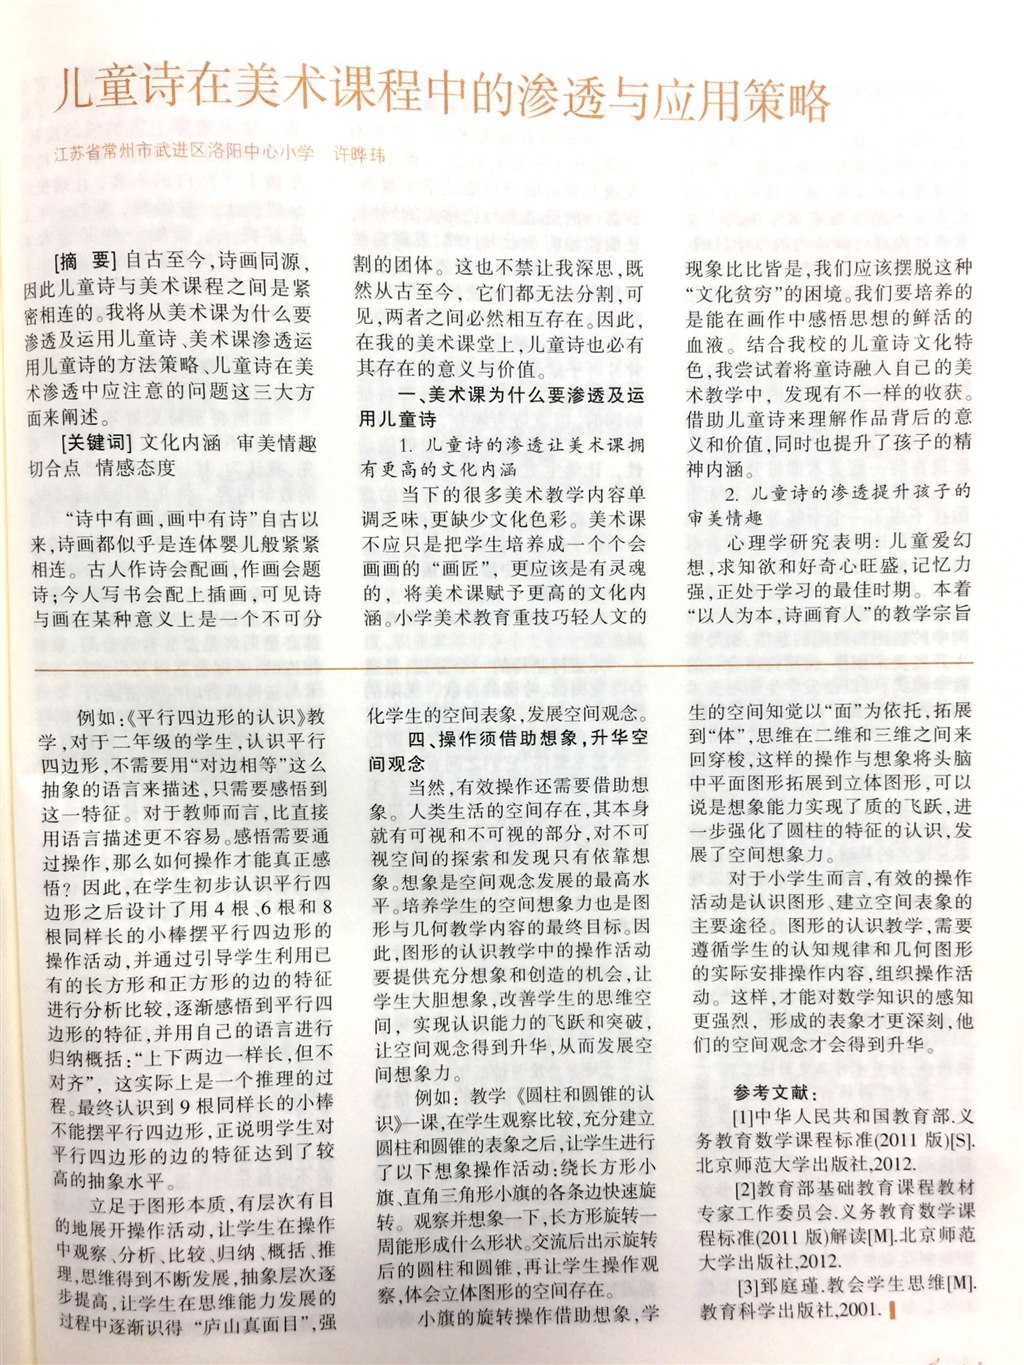 儿童诗在美术课程中的渗透与应用策略
江苏省常州市武进区洛阳中心小学 许晔玮
[摘 要] 自古至今,诗画同源,
因此儿童诗与美术课程之间是紧
密相连的。我将从美术课为什么要
渗透及运用儿童诗、美术课渗透运
用儿童诗的方法策略、儿童诗在美
术渗透中应注意的问题这三大方
面来阐述。
[关键词] 文化内涵 审美情趣
切合点 情感态度
“诗中有画,画中有诗”自古以
来,诗画都似乎是连体婴儿般紧紧
相连。古人作诗会配画,作画会题
诗;今人写书会配上插画,可见诗
与画在某种意义上是一个不可分
割的团体。这也不禁让我深思,既
然从古至今, 它们都无法分割,可
见,两者之间必然相互存在。因此,
在我的美术课堂上,儿童诗也必有
其存在的意义与价值。
一、美术课为什么要渗透及运
用儿童诗
1. 儿童诗的渗透让美术课拥
有更高的文化内涵
当下的很多美术教学内容单
调乏味,更缺少文化色彩。美术课
不应只是把学生培养成一个个会
画画的 “画匠”, 更应该是有灵魂
的, 将美术课赋予更高的文化内
涵。小学美术教育重技巧轻人文的
现象比比皆是,我们应该摆脱这种
“文化贫穷”的困境。我们要培养的
是能在画作中感悟思想的鲜活的
血液。结合我校的儿童诗文化特
色,我尝试着将童诗融入自己的美
术教学中, 发现有不一样的收获。
借助儿童诗来理解作品背后的意
义和价值,同时也提升了孩子的精
神内涵。
2. 儿童诗的渗透提升孩子的
审美情趣
心理学研究表明: 儿童爱幻
想,求知欲和好奇心旺盛,记忆力
强,正处于学习的最佳时期。本着
“以人为本,诗画育人”的教学宗旨
例如:《平行四边形的认识》教
学,对于二年级的学生,认识平行
四边形,不需要用“对边相等”这么
抽象的语言来描述,只需要感悟到
这一特征。对于教师而言,比直接
用语言描述更不容易。感悟需要通
过操作,那么如何操作才能真正感
悟? 因此,在学生初步认识平行四
边形之后设计了用 4 根、6 根和 8
根同样长的小棒摆平行四边形的
操作活动,并通过引导学生利用已
有的长方形和正方形的边的特征
进行分析比较,逐渐感悟到平行四
边形的特征,并用自己的语言进行
归纳概括:“上下两边一样长,但不
对齐”, 这实际上是一个推理的过
程。最终认识到 9 根同样长的小棒
不能摆平行四边形,正说明学生对
平行四边形的边的特征达到了较
高的抽象水平。
立足于图形本质,有层次有目
的地展开操作活动,让学生在操作
中观察、分析、比较、归纳、概括、推
理,思维得到不断发展,抽象层次逐
步提高,让学生在思维能力发展的
过程中逐渐识得 “庐山真面目”,强
化学生的空间表象,发展空间观念。
四、操作须借助想象,升华空
间观念
当然,有效操作还需要借助想
象。人类生活的空间存在,其本身
就有可视和不可视的部分,对不可
视空间的探索和发现只有依靠想
象。想象是空间观念发展的最高水
平。培养学生的空间想象力也是图
形与几何教学内容的最终目标。因
此,图形的认识教学中的操作活动
要提供充分想象和创造的机会,让
学生大胆想象,改善学生的思维空
间, 实现认识能力的飞跃和突破,
让空间观念得到升华,从而发展空
间想象力。
例如: 教学《圆柱和圆锥的认
识》一课,在学生观察比较,充分建立
圆柱和圆锥的表象之后,让学生进行
了以下想象操作活动:绕长方形小
旗、直角三角形小旗的各条边快速旋
转。观察并想象一下,长方形旋转一
周能形成什么形状。交流后出示旋转
后的圆柱和圆锥,再让学生操作观
察,体会立体图形的空间存在。
小旗的旋转操作借助想象,学
生的空间知觉以“面”为依托,拓展
到“体”,思维在二维和三维之间来
回穿梭,这样的操作与想象将头脑
中平面图形拓展到立体图形,可以
说是想象能力实现了质的飞跃,进
一步强化了圆柱的特征的认识,发
展了空间想象力。
对于小学生而言,有效的操作
活动是认识图形、建立空间表象的
主要途径。图形的认识教学,需要
遵循学生的认知规律和几何图形
的实际安排操作内容,组织操作活
动。这样,才能对数学知识的感知
更强烈, 形成的表象才更深刻,他
们的空间观念才会得到升华。
参考文献:
[1]中华人民共和国教育部.义
务教育数学课程标准(2011 版)[S].
北京师范大学出版社,2012.
[2]教育部基础教育课程教材
专家工作委员会.义务教育数学课
程标准(2011 版)解读[M].北京师范
大学出版社,2012.
[3]郅庭瑾.教会学生思维[M].
教育科学出版社,2001.